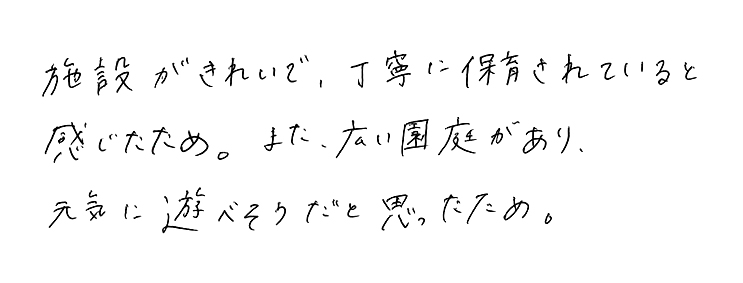 施設がきれいで、丁寧に保育されていると
感じたため。また、広い園庭があり、
元気に遊べそうだと思ったため。